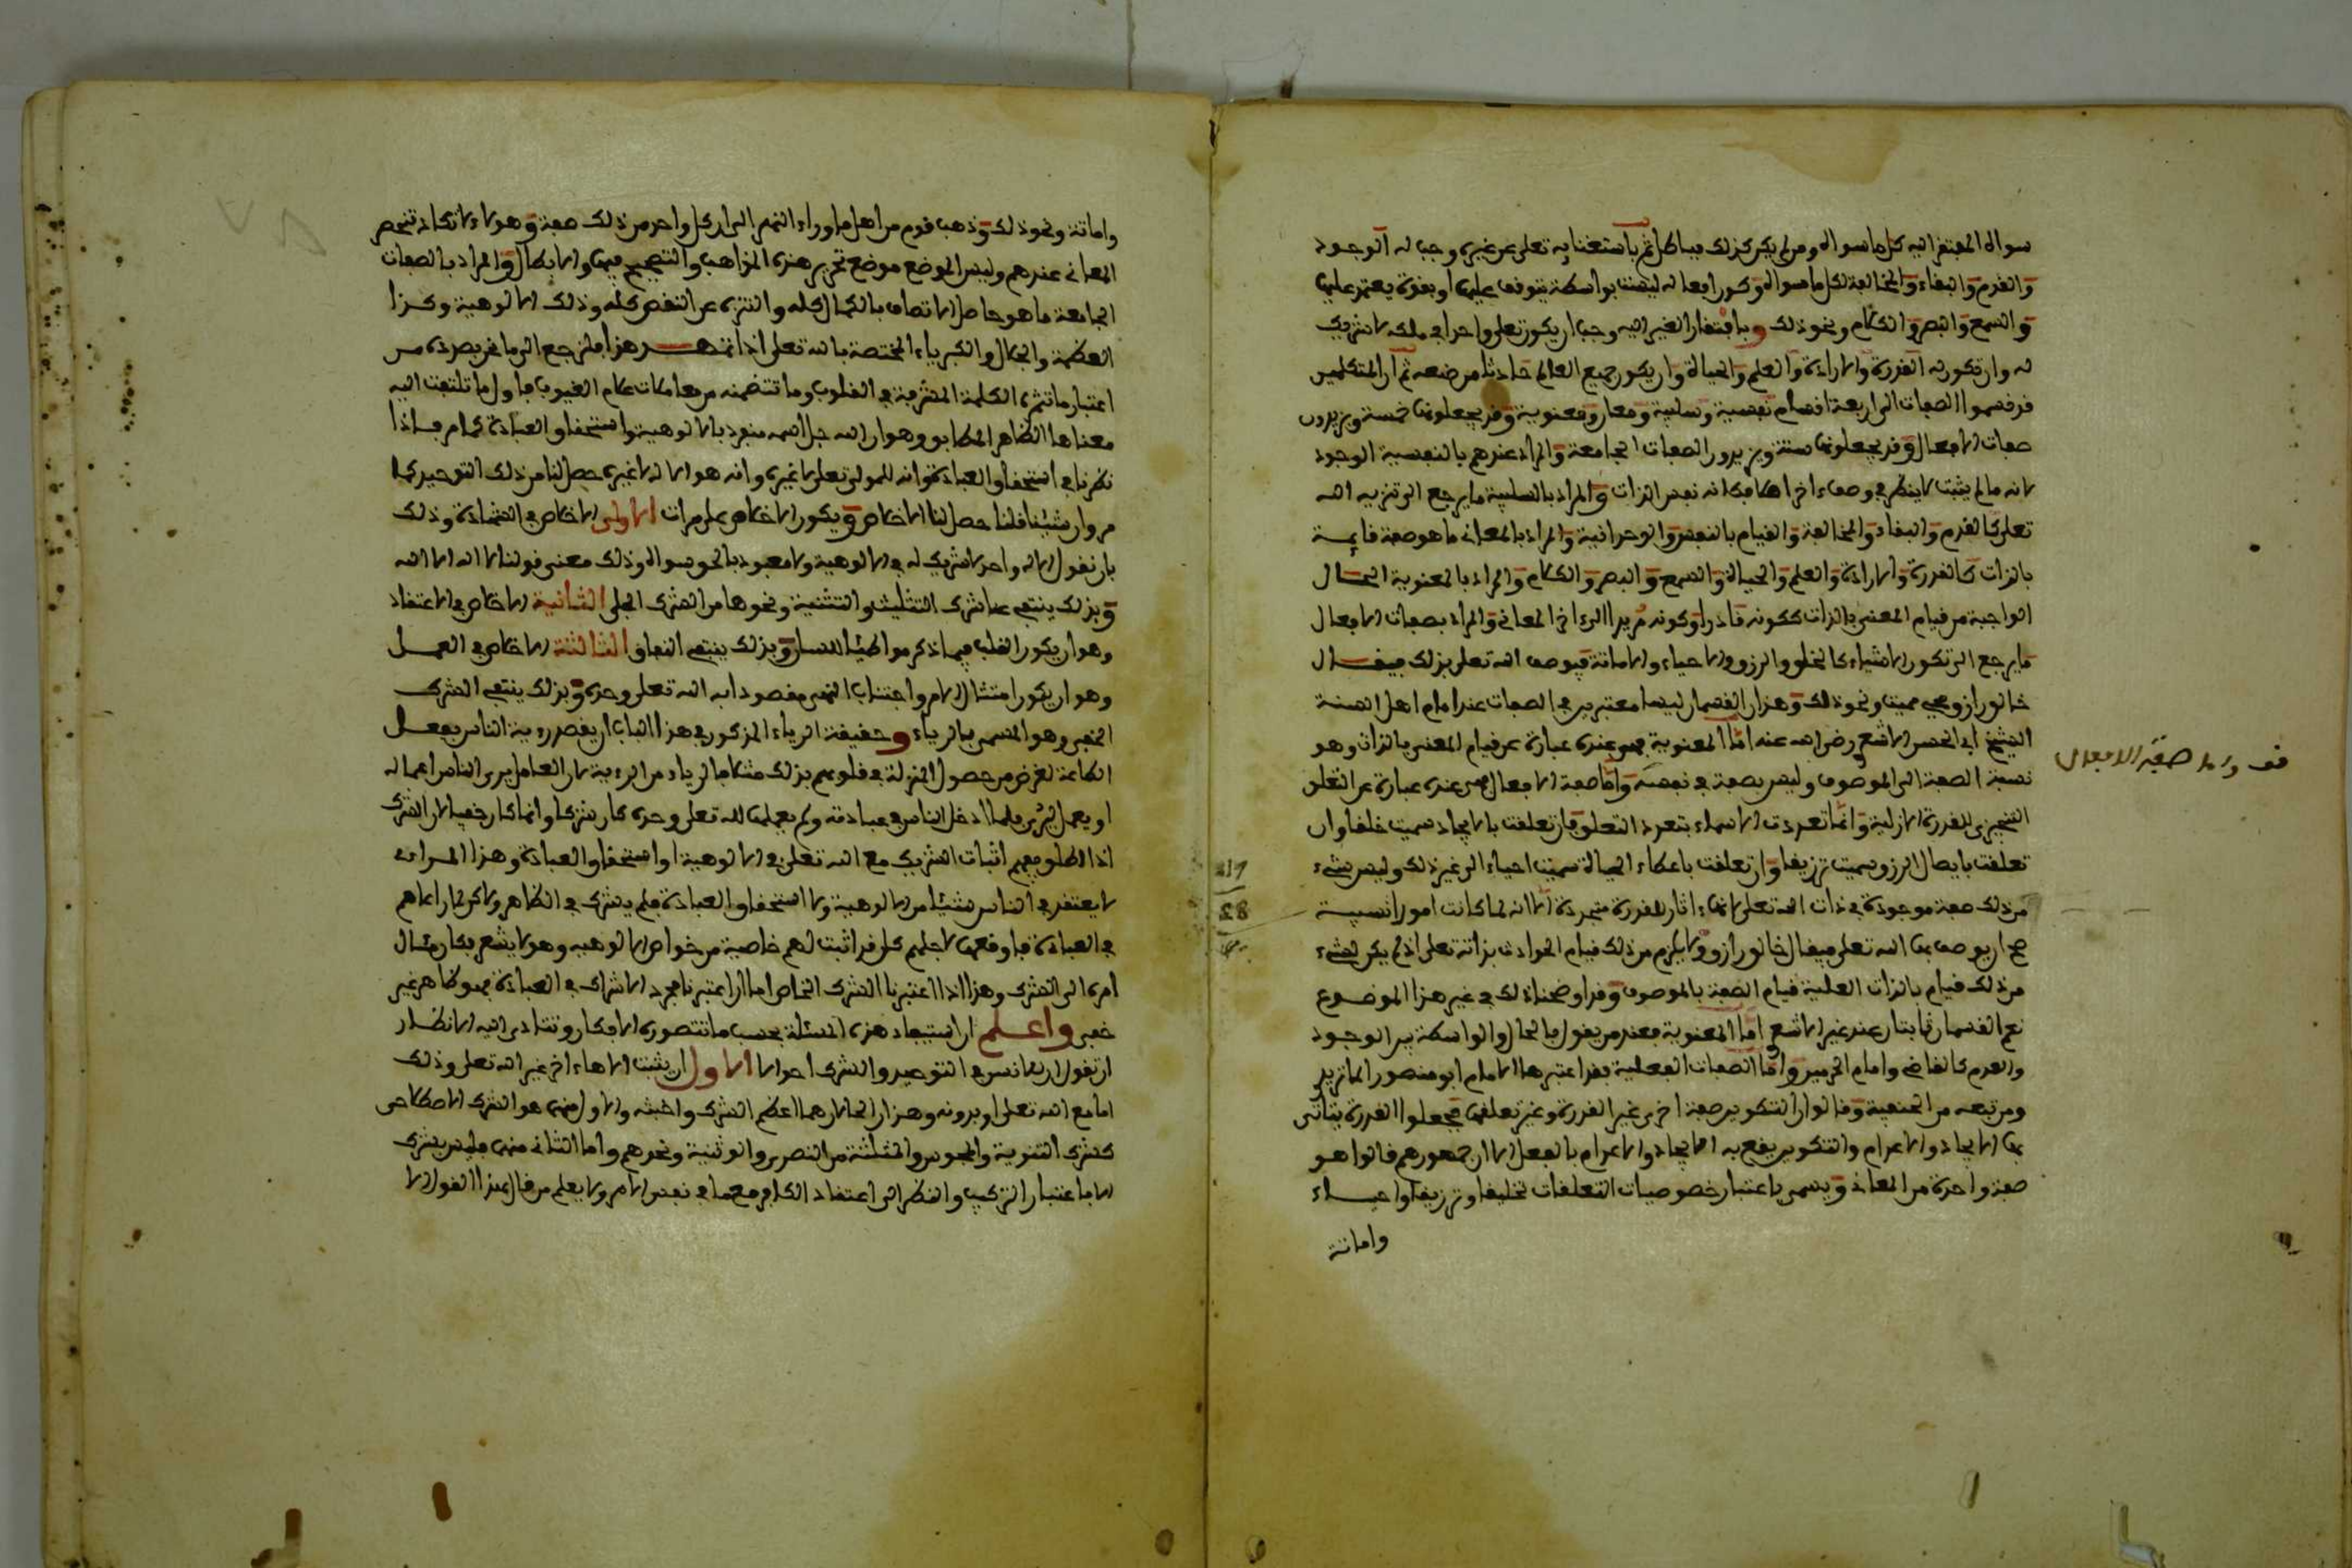 سواه المفتقر اليه كل ما سواه ومن لم يكن كذلك فباطل ثم باستغنايه تعلى عن غيره وجب له الوجود
والقدم والبقاء والمخالفة لكل ما سواه وكون افعاله ليست بواسطة يتوقف عليها او بقوة يعتمد عليها
والسمع والبصر والكلام ونحو ذلك وبافتقار الغير اليه وجب ان يكون تعلى واحدا في ملكه لا شريك
له وان تكون له القدرة والارادة والعلم والحياة وان يكون جميع العالم حادثا من صنعه ثم ان المتكلمين
قد قسموا الصفات الى اربعة اقسام نفسية وسلبية ومعان ومعنوية وقد يجعلونها خمسة ويزيدون
صفات الافعال وقد يجعلونها ستة ويزيدون الصفات الجامعة والمراد عندهم بالنفسية الوجود
لانه ما لم يثبت لا ينظر في وصف اخر اذ كانه نفس الذات والمراد بالسلبية ما يرجع الى تنزيه الله
تعلى كالقدم والبقاء والمخالفة والقيام بالنفس والوحدانية والمراد بالمعاني ما هو صفة قايمة
بالذات كالقدرة والارادة والعلم والحياة والسمع والبصر والكلام والمراد بالمعنوية الحال
الواجبة من قيام المعنى بالذات ككونه قادرا وكونه مريدا الى اخر المعاني والمراد بصفات الافعال
ما يرجع الى تكوين الاشياء كالخلق والرزق والاحياء والاماتة فيوصف الله تعلى بذلك فيقال
خالق رازق محيي مميت ونحو ذلك وهذان القسمان ليسا معتبرين في الصفات عند امام اهل السنة
الشيخ ابي الحسن الاشعري رضي الله عنه اما المعنوية فهي عنده عبارة عن قيام المعنى بالذات وهو
نسبة الصفة الى الموصوف وليس بصفة في نفسه واما صفة الافعال فهي عنده عبارة عن التعلق
قف واما صفة الافعال
التنجيزي للقدرة الازلية وانما تعددت الاسماء بتعدد التعلق فان تعلقت بالايجاد سميت خلقا وان
تعلقت بايصال الرزق سميت ترزيقا وان تعلقت باعطاء الحياة سميت احياء الى غير ذلك وليس شيء
من ذلك صفة موجودة في ذات الله تعلى لانها اثار للقدرة متجددة الا انه لما كانت امورا نسبية
صح ان يوصف بها الله تعلى فيقال خالق رازق ولا يلزم من ذلك قيام الحوادث بذاته تعلى اذ لم يكن لشيء
من ذلك قيام بالذات العلية قيام الصفة بالموصوف وقد اوضحنا ذلك في غير هذا الموضوع
نعم القسمان ثابتان عند غير الاشعري اما المعنوية فعند من يقول بالحال والواسطة بين الوجود
والعدم كالقاضي وامام الحرمين واما الصفات الفعلية فقد اعتبرها الامام ابو منصور الماتريدي
ومن تبعه من الحنفية وقالوا ان التكوين صفة اخرى غير القدرة وغير تعلقها فجعلوا القدرة يتاتى
بها الايجاد والاعدام والتكوين يقع به الايجاد والاعدام بالفعل الا ان جمهورهم قالوا هو
صفة واحدة من المعاني ويسمى باعتبار خصوصيات التعلقات تخليقا وترزيقا واحياء
واماتة
واماتة ونحو ذلك وذهب قوم من اهل ما وراء النهر الى ان كل واحد من ذلك صفة وهؤلاء لا تكاد تنحصر
المعاني عندهم وليس الموضع موضع تحرير هذه المذاهب والتصحيح فيها والابطال والمراد بالصفات
الجامعة ما هو حاصل الاتصاف بالكمال كله والتنزه عن النقص كله وذلك الالوهية وكذا
العظمة والجلال والكبرياء المختصة بالله تعلى اذا تمهد هذا فلنرجع الى ما نحن بصدده من
اعتبار ما تثمره الكلمة المشرفة في القلوب وما تتضمنه من معاملات علام الغيوب فاول ما تلتفت اليه
معناها الظاهر المطابقي وهو ان الله جل اسمه منفرد بالالوهية واستحقاق العبادة كما مر فاذا
نظرنا في استحقاق العبادة وانه للمولى تعلى لا غيره وانه هو الاله لا غيره حصل لنا من ذلك التوحيد كما
مر وان شئنا قلنا حصل لنا الاخلاص ويكون الاخلاص على مراتب الاولى الاخلاص في الشهادة وذلك
بان نقول الاله واحد لا شريك له في الالوهية ولا معبود بالحق سواه وذلك معنى قولنا لا اله الا الله
وبذلك ينتفي عنا شرك التثليث والتثنية ونحوها من الشرك الجلي الثانية الاخلاص في الاعتقاد
وهو ان يكون القلب فيما ذكر مواطئا للسان وبذلك ينتفي النفاق الثالثة الاخلاص في العمل
وهو ان يكون امتثال الامر واجتناب النهي مقصودا به الله تعلى وحده وبذلك ينتفي الشرك
الخفي وهو المسمى بالرياء وحقيقة الرياء المذكور في هذا الباب ان يقصد رءية الناس بفعل
الطاعة لغرض من حصول المنزلة في قلوبهم بذلك مثلا فالرياء من الرءية لان العامل يري الناس اعماله
او يعمل ليرى فلما ادخل الناس في عبادته ولم يعملها لله تعلى وحده كان شركا وانما كان خفيا لان الشرك
اذا اطلق يفهم اثبات الشريك مع الله تعلى في الالوهية او استحقاق العبادة وهذا المرائي
لا يعتقد في الناس شيئا من الالوهية ولا استحقاق العبادة فلم يشرك في الظاهر ولكن لما راءاهم
في العبادة فاوقعها لاجلهم كان قد اثبت لهم خاصية من خواص الالوهية وهو لا يشعر فكان مئال
امره الى الشرك وهذا اذا اعتبرنا الشرك الخاص اما ان اعتبرنا مجرد الاشراك في العبادة فهو ظاهر غير
خفي واعلم ان استيفاء هذه المسئلة بحسب ما تتصوره الافكار وتتادى اليه الانظار
ان تقول ان للانسان في التوحيد والشرك احوالا الاول ان يثبت الاها ءاخر غير الله تعلى وذلك
اما مع الله تعلى او بدونه وهذان الحالان هما اعظم الشرك واخبثه والاول منهما هو الشرك الاصطلاحي
كشرك الثنوية والمجوس والمثلثة من النصرى والوثنية ونحوهم واما الثاني منهما فليس بشرك
الا باعتبار التركيب والنظر الى اعتقاد الكافر مع ما في نفس الامر ولا يعلم من قال بهذا القول الا